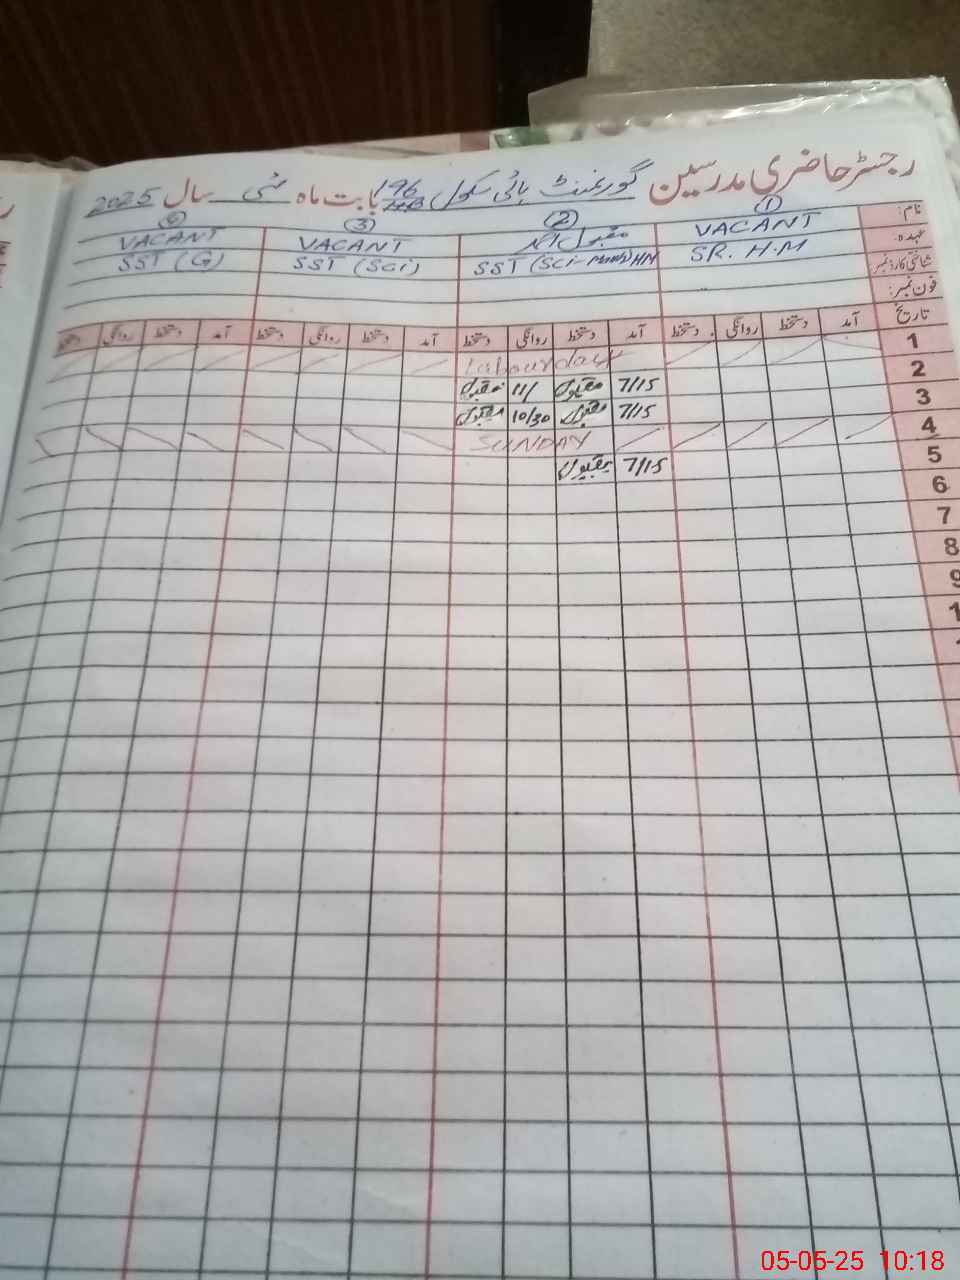 رجسٹر حاضری مدرسین گورنمنٹ ہائی سکول 196 HB بابت ماہ مئی سال 2025
نام: ① VACANT ② مقبول احمد ③ VACANT ④ VACANT
عہدہ: SR. H.M SST (Sci-Math) HM SST (Sci) SST (G)
شناختی کارڈ نمبر:
فون نمبر:
تاریخ آمد دستخط روانگی دستخط آمد دستخط روانگی دستخط آمد دستخط روانگی دستخط آمد دستخط روانگی دستخط
1 Labour day
2 7/15 مقبول 11/ مقبول
3 7/15 مقبول 10/30 مقبول
4 SUNDAY
5 7/15 مقبول
6
7
8
9
05-05-25 10:18